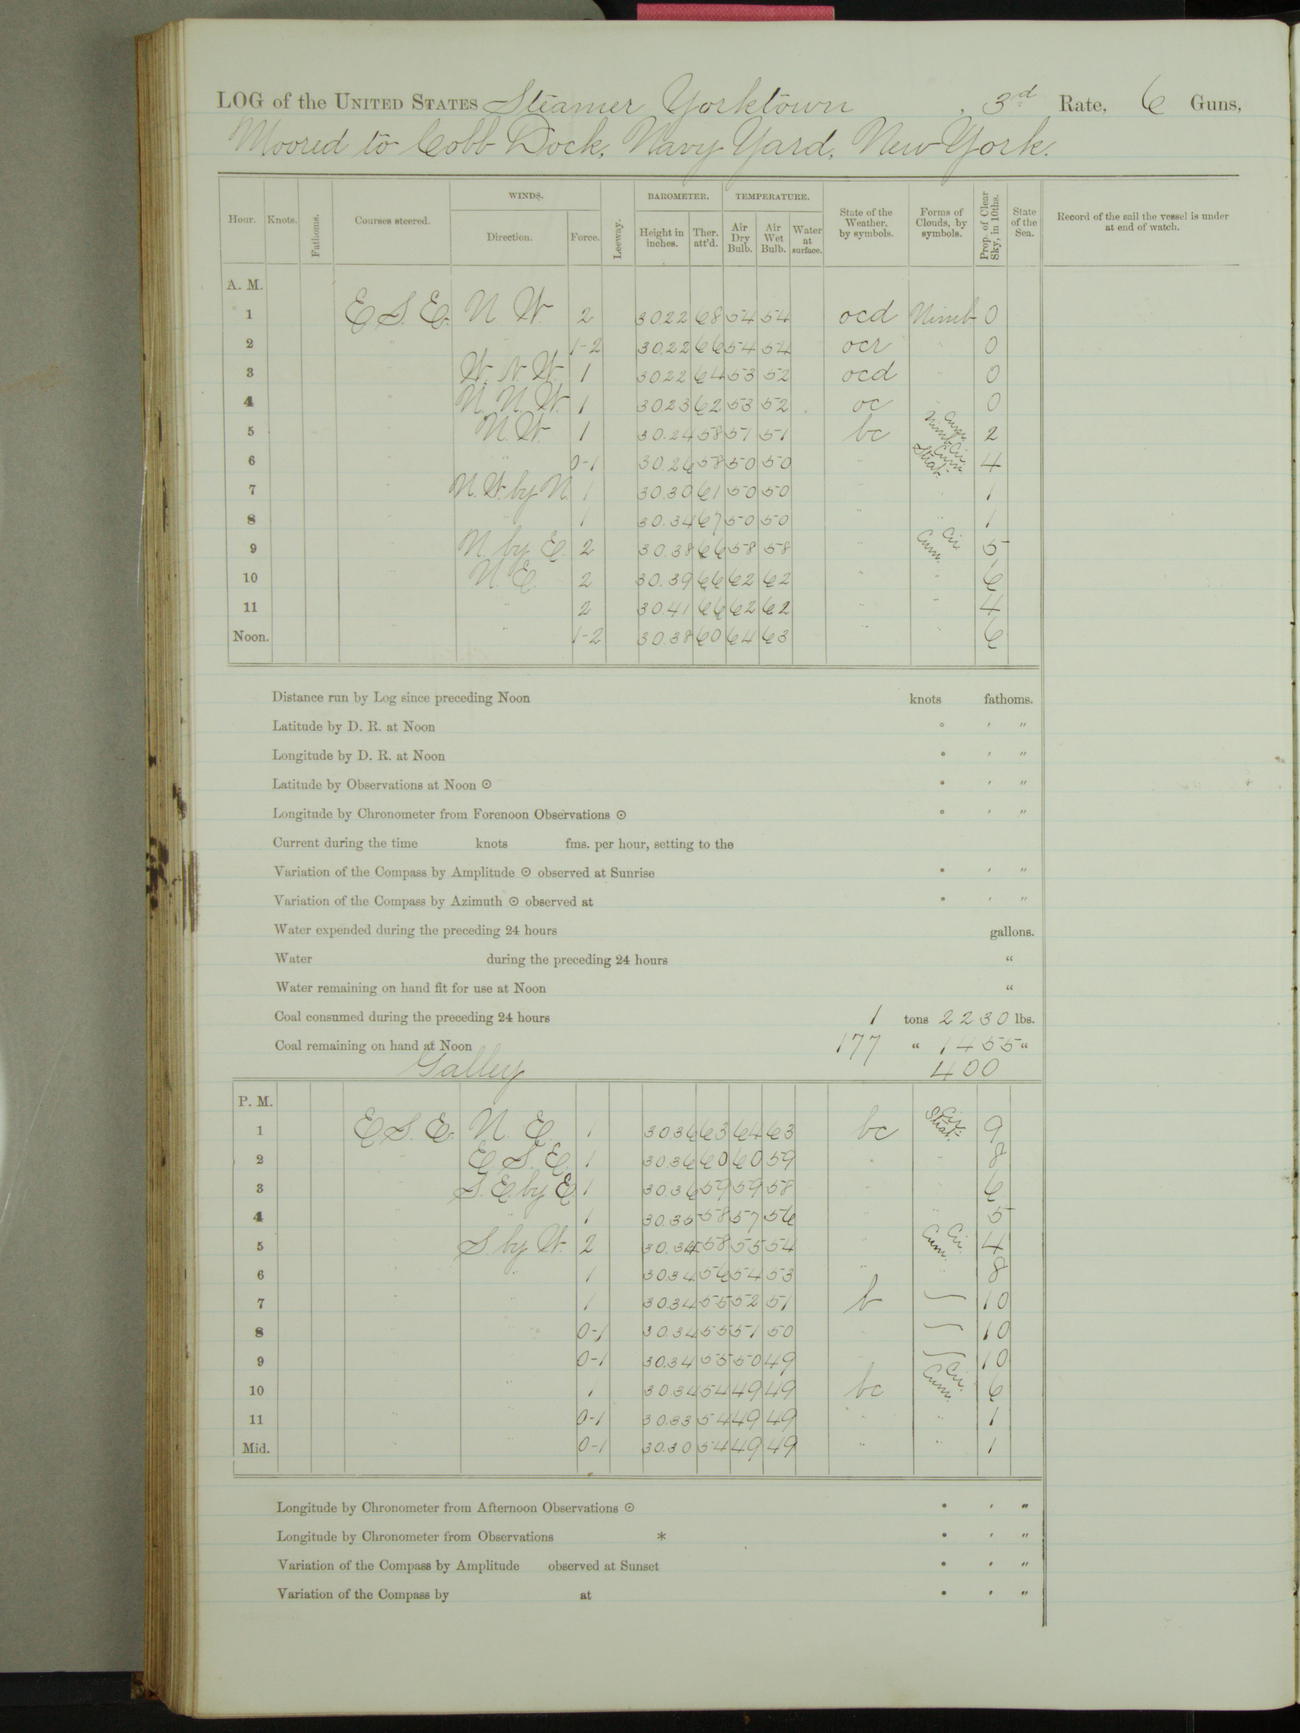 LOG of the UNITED STATES Steamer Yorktown, 3rd Rate, 6 Guns,
Moored to Cobb Dock, Navy Yard, New York.
Hour. Knots. Fathoms. Courses steered. WINDS. Direction. Force. Leeway. BAROMETER. Height in inches. Ther. att'd. TEMPERATURE. Air Dry Bulb. Air Wet Bulb. Water at surface. State of the Weather, by symbols. Forms of Clouds, by symbols. Prop. of Clear Sky, in 10ths. State of the Sea. Record of the sail the vessel is under at end of watch.
A. M.
1 E S. E. N W. 2 30.22 68 54 54 ocd Nimb 0
2 " " 1-2 30.22 66 54 54 ocr " 0
3 " W. N W. 1 30.22 64 53 52 ocd " 0
4 " N. N W. 1 30.23 62 53 52 oc " 0
5 " N. W. 1 30.24 58 51 51 bc Cum. Nimb 2
6 " " 0-1 30.26 58 50 50 " Cir. Cum. Strat. 4
7 " N. W. by N. 1 30.30 61 50 50 " " 1
8 " " 1 30.34 67 50 50 " " 1
9 " N. by E. 2 30.38 66 58 58 " Cir. Cum. 5
10 " N. E. 2 30.39 66 62 62 " " 6
11 " " 2 30.41 66 62 62 " " 4
Noon. " " 1-2 30.38 60 64 63 " " 6
Distance run by Log since preceding Noon knots fathoms.
Latitude by D. R. at Noon ° ′ ″
Longitude by D. R. at Noon ° ′ ″
Latitude by Observations at Noon ⊙ ° ′ ″
Longitude by Chronometer from Forenoon Observations ⊙ ° ′ ″
Current during the time knots fms. per hour, setting to the
Variation of the Compass by Amplitude ⊙ observed at Sunrise ° ′ ″
Variation of the Compass by Azimuth ⊙ observed at ° ′ ″
Water expended during the preceding 24 hours gallons.
Water during the preceding 24 hours "
Water remaining on hand fit for use at Noon "
Coal consumed during the preceding 24 hours 1 tons 2230 lbs.
Coal remaining on hand at Noon 177 " 1455 "
Galley 400
P. M.
1 E. S. E. N. E. 1 30.36 63 64 63 bc Cir.- Strat. 9
2 " E S. E. 1 30.36 60 60 59 " " 8
3 " S. E by E 1 30.36 59 59 58 " " 6
4 " " 1 30.35 58 57 56 " " 5
5 " S by W. 2 30.34 58 55 54 " Cir. Cum. 4
6 " " 1 30.34 56 54 53 " " 8
7 " " 1 30.34 55 52 51 b — 10
8 " " 0-1 30.34 55 51 50 " — 10
9 " " 0-1 30.34 55 50 49 " — 10
10 " " 1 30.34 54 49 49 bc Cir. Cum. 6
11 " " 0-1 30.33 54 49 49 " " 1
Mid. " " 0-1 30.30 54 49 49 " " 1
Longitude by Chronometer from Afternoon Observations ⊙ ° ′ ″
Longitude by Chronometer from Observations * ° ′ ″
Variation of the Compass by Amplitude observed at Sunset ° ′ ″
Variation of the Compass by at ° ′ ″